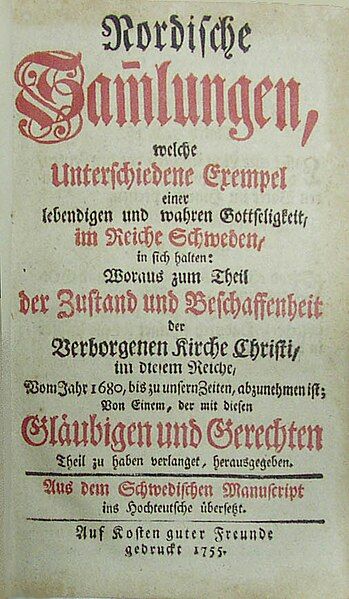 Nordische
Sam̃lungen,
welche
Unterschiedene Exempel
einer
lebendigen und wahren Gottseligkeit/
im Reiche Schweden/
in sich halten:
Woraus zum Theil
der Zustand und Beschaffenheit
der
Verborgenen Kirche Christi/
im diesem Reiche,
Vom Jahr 1680, bis zu unsern Zeiten, abzunehmen ist;
Von Einem, der mit diesen
Gläubigen und Gerechten
Theil zu haben verlanget, herausgegeben.
Aus dem Schwedischen Manuscript
ins Hochteutsche übersetzt.
Auf Kosten guter Freunde
gedruckt 1755.